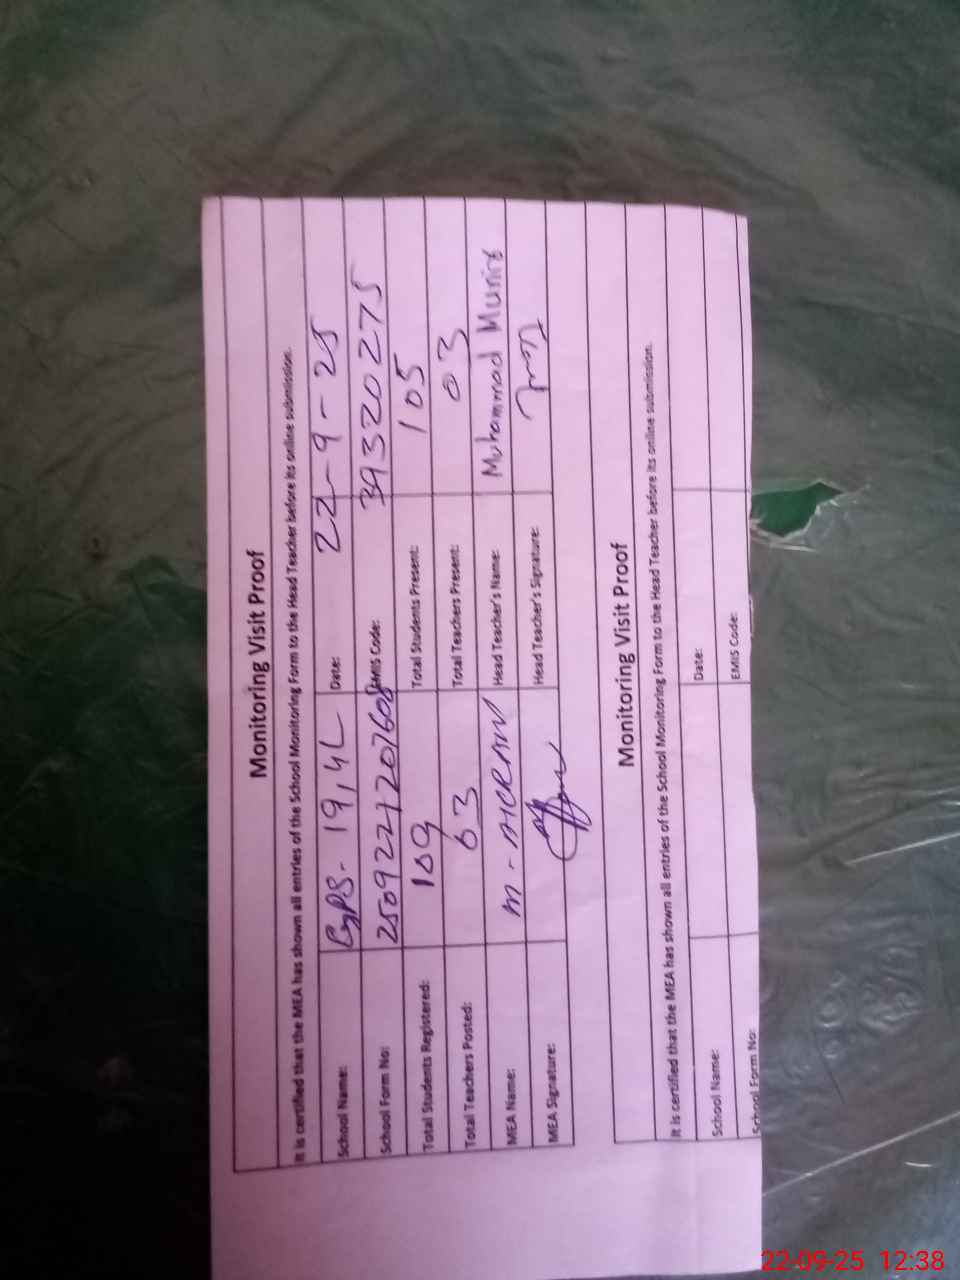 Monitoring Visit Proof
It is certified that the MEA has shown all entries of the School Monitoring Form to the Head Teacher before its online submission.
School Name: GPS. 19,4L Date: 22-9-25
School Form No: EMIS Code: 39320275
Total Students Registered: 109 Total Students Present: 105
Total Teachers Posted: 03 Total Teachers Present: 03
MEA Name: M. Head Teacher's Name: Muhammad Munir
MEA Signature: Head Teacher's Signature:
Monitoring Visit Proof
It is certified that the MEA has shown all entries of the School Monitoring Form to the Head Teacher before its online submission.
School Name: Date:
School Form No: EMIS Code:
22-09-25 12:38